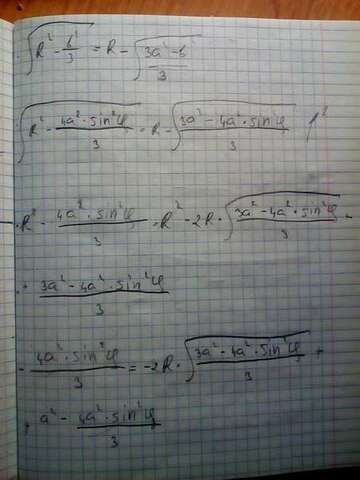 √(R² - b²/3) = R - √((3a² - b)/3)
√(R² - (4a²·sin²φ)/3) = R - √((3a² - 4a²·sin²φ)/3)
R² - (4a²·sin²φ)/3 = R² - 2R·√((3a² - 4a²·sin²φ)/3) +
+ (3a² - 4a²·sin²φ)/3
- (4a²·sin²φ)/3 = -2R·√((3a² - 4a²·sin²φ)/3) +
+ a² - (4a²·sin²φ)/3